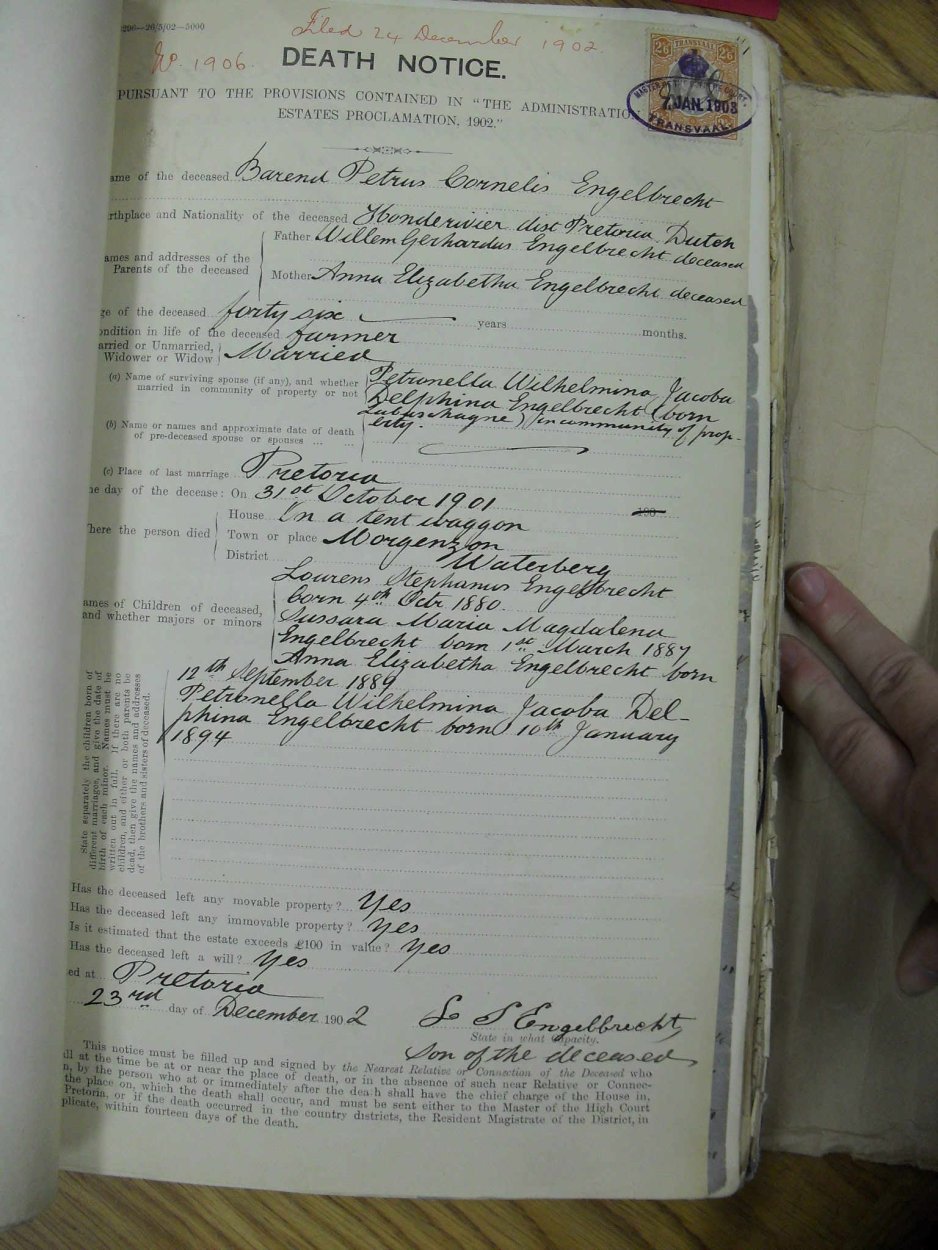 296—26/5/02—5000
Filed 24 December 1902.
No. 1906.
DEATH NOTICE.
TRANSVAAL
7 JAN 1903
TRANSVAAL
PURSUANT TO THE PROVISIONS CONTAINED IN "THE ADMINISTRATIO
ESTATES PROCLAMATION, 1902."
ame of the deceased Barend Petrus Cornelis Engelbrecht
rthplace and Nationality of the deceased Honderivier dist Pretoria. Dutch
Father Willem Gerhardus Engelbrecht deceased
ames and addresses of the
Parents of the deceased
Mother Anna Elizabetha Engelbrecht deceased
ge of the deceased forty six years months.
ondition in life of the deceased farmer
arried or Unmarried,
Widower or Widow Married
(a) Name of surviving spouse (if any), and whether
married in community of property or not
Petronella Wilhelmina Jacoba
Delphina Engelbrecht (born
Labuschagne) in community of prop-
erty.
(b) Name or names and approximate date of death
of pre-deceased spouse or spouses ... ...
(c) Place of last marriage Pretoria
he day of the decease: On 31st October 1901 190
House In a tent waggon
here the person died Town or place Morgenzon
District Waterberg
Lourens Stephanus Engelbrecht
born 4th Octr 1880.
ames of Children of deceased,
and whether majors or minors
Sussara Maria Magdalena
Engelbrecht born 1st March 1887
Anna Elizabetha Engelbrecht born
12th September 1889
Petronella Wilhelmina Jacoba Del-
phina Engelbrecht born 10th January
1894
State separately the children born of
different marriages, and give the date of
birth of each minor. Names must be
written out in full. If there are no
children, and either or both parents be
dead, then give the names and addresses
of the brothers and sisters of deceased.
Has the deceased left any movable property? Yes
Has the deceased left any immovable property? Yes
Is it estimated that the estate exceeds £100 in value? Yes
Has the deceased left a will? Yes
ed at Pretoria
23rd day of December 1902
L S Engelbrecht
State in what capacity.
Son of the deceased
This notice must be filled up and signed by the Nearest Relative or Connection of the Deceased who
ll at the time be at or near the place of death, or in the absence of such near Relative or Connec-
n, by the person who at or immediately after the death shall have the chief charge of the House in,
the place on, which the death shall occur, and must be sent either to the Master of the High Court
Pretoria, or if the death occurred in the country districts, the Resident Magistrate of the District, in
plicate, within fourteen days of the death.